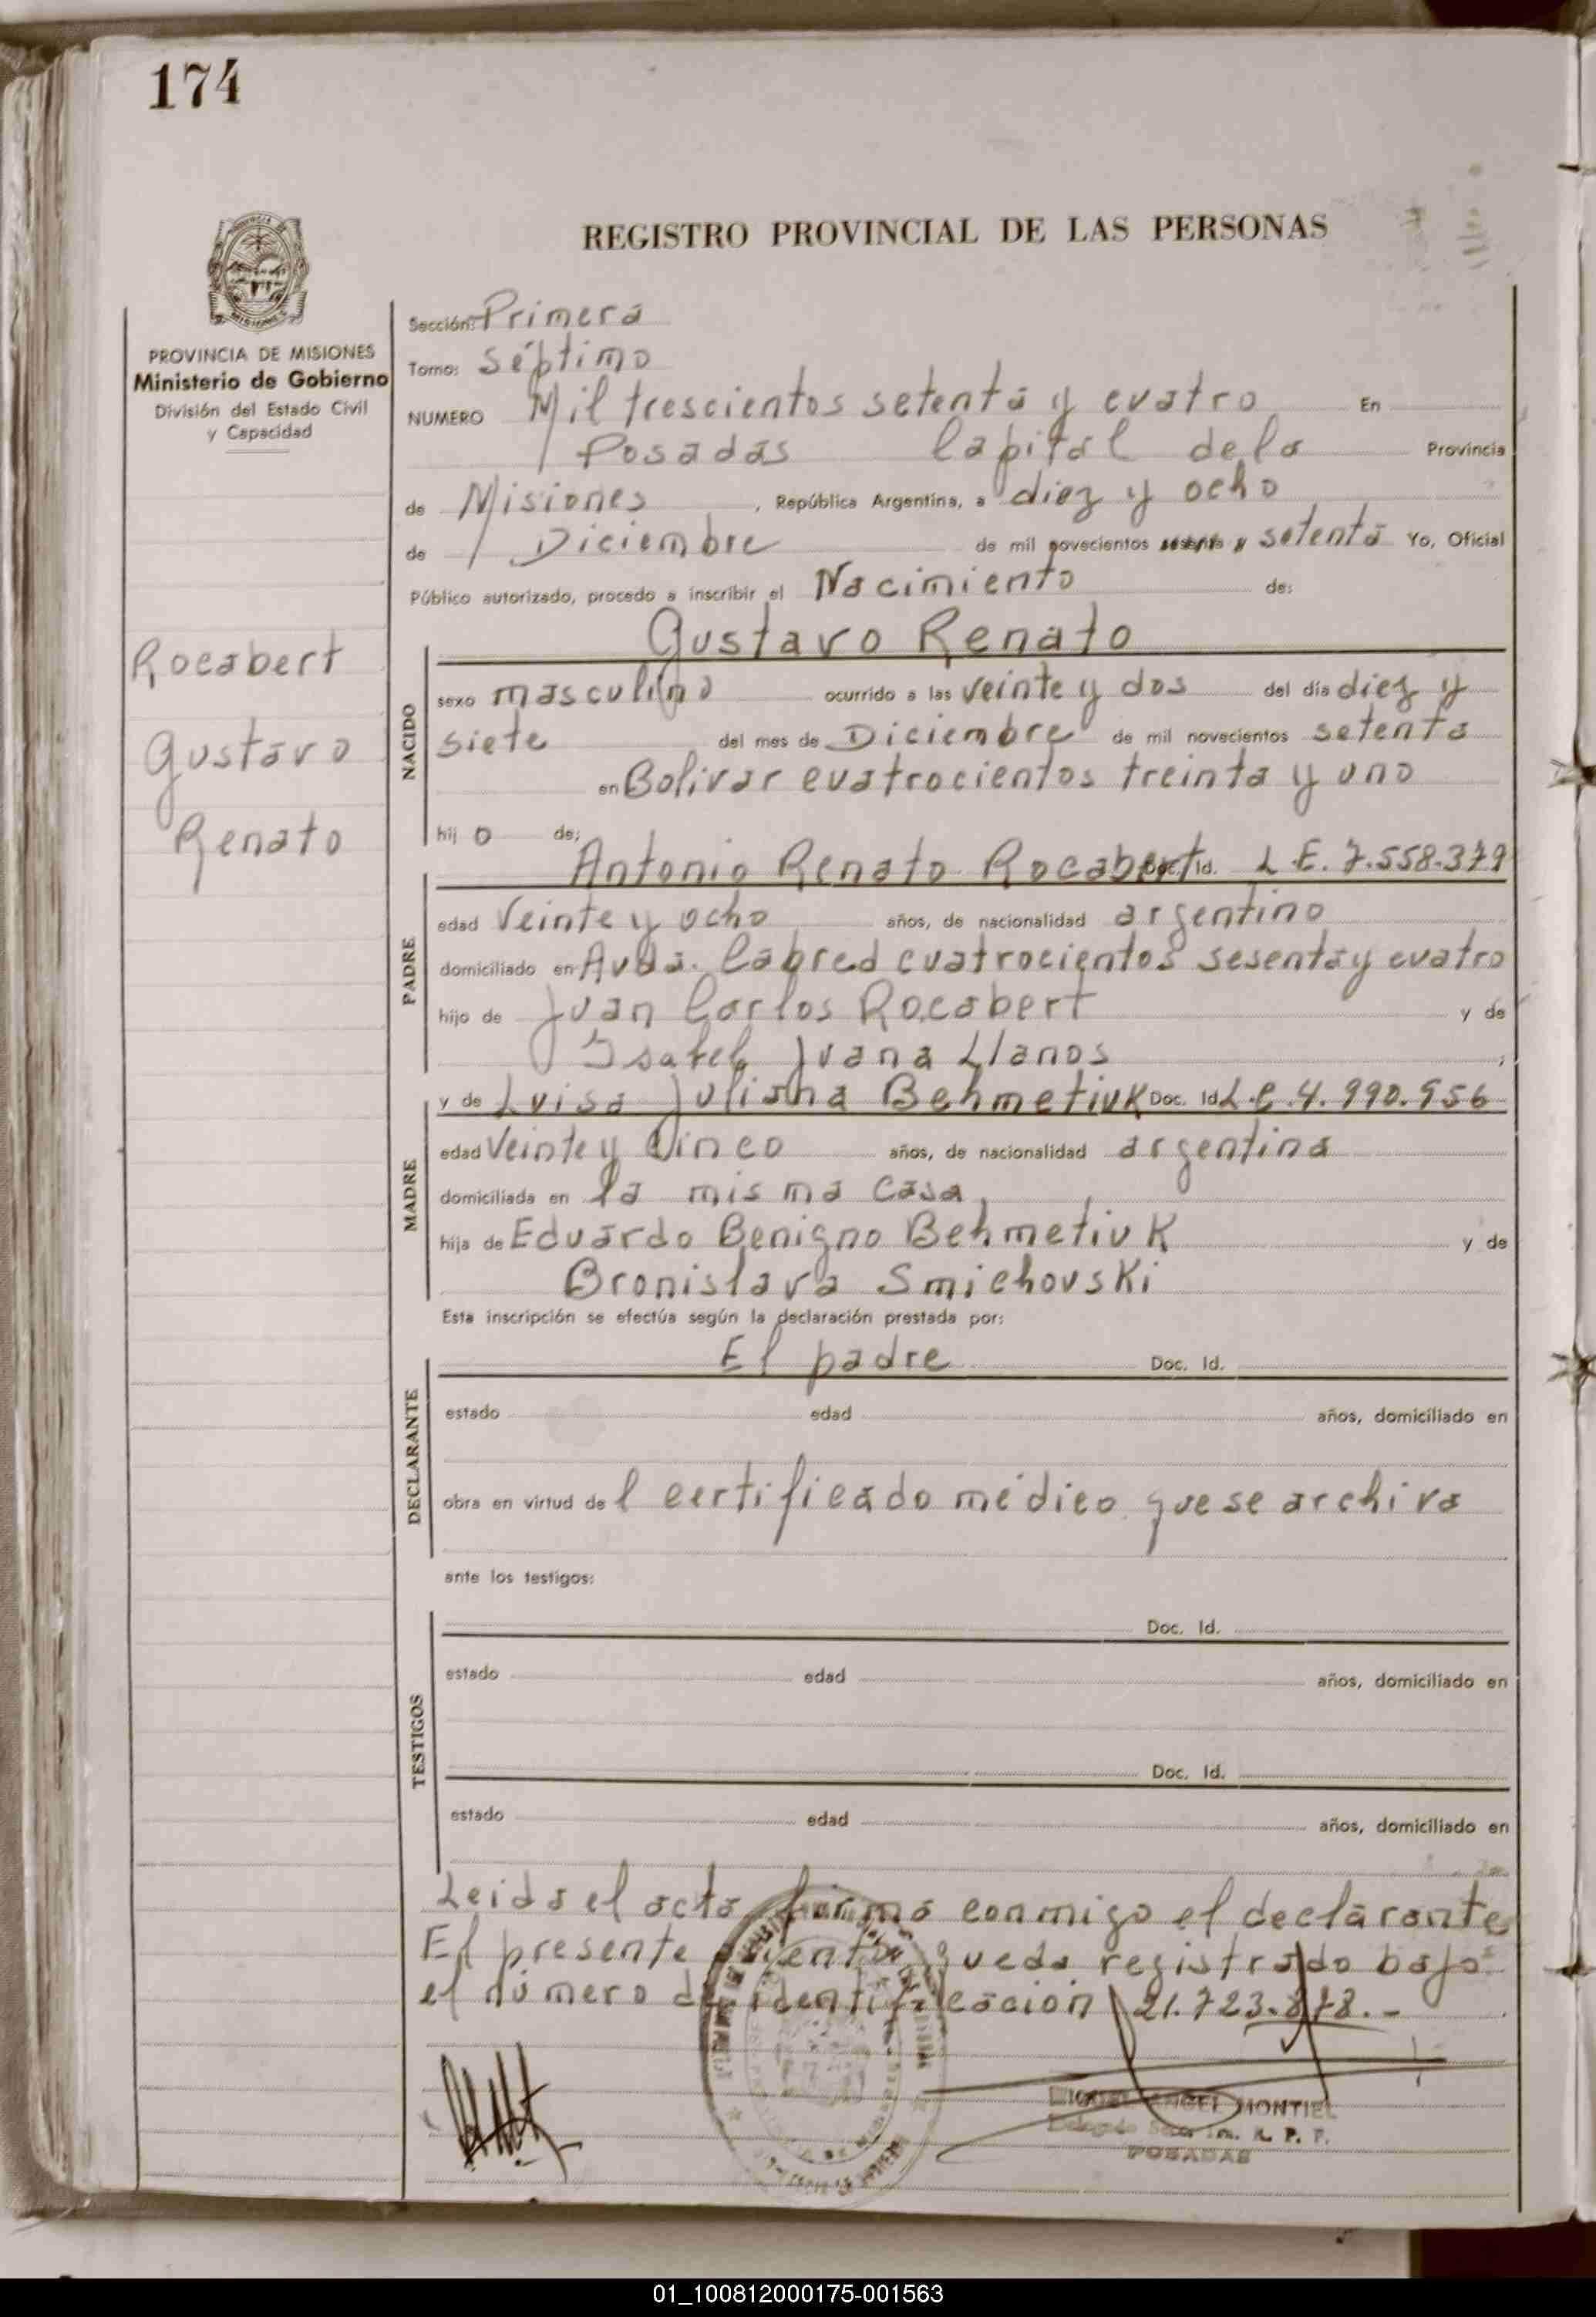 174
REGISTRO PROVINCIAL DE LAS PERSONAS
PROVINCIA DE MISIONES
Ministerio de Gobierno
División del Estado Civil
y Capacidad
Rocabert
Gustavo
Renato
Sección: Primera
Tomo: Séptimo
NUMERO Mil trescientos setenta y cuatro En
Posadas Capital de la Provincia
de Misiones, República Argentina, a diez y ocho
de Diciembre de mil novecientos sesenta y setenta Yo, Oficial
Público autorizado, procedo a inscribir el Nacimiento de:
Gustavo Renato
NACIDO
sexo masculino ocurrido a las veinte y dos del día diez y
siete del mes de Diciembre de mil novecientos setenta
en Bolivar cuatrocientos treinta y uno
hij o de:
Antonio Renato Rocabert Doc. Id. L.E. 7.558.379
PADRE
edad Veinte y ocho años, de nacionalidad argentino
domiciliado en Avda. Cabred cuatrocientos sesenta y cuatro
hijo de Juan Carlos Rocabert y de
Isabel Juana Llanos ;
y de Luisa Juliana Behmetiuk Doc. Id. L.C. 4.990.956
MADRE
edad Veinte y Cinco años, de nacionalidad argentina
domiciliada en la misma casa,
hija de Eduardo Benigno Behmetiuk y de
Bronislava Smichovski
Esta inscripción se efectúa según la declaración prestada por:
El padre Doc. Id.
DECLARANTE
estado edad años, domiciliado en
obra en virtud de l certificado médico que se archiva
ante los testigos:
Doc. Id.
TESTIGOS
estado edad años, domiciliado en
Doc. Id.
estado edad años, domiciliado en
Leida el acta, firma conmigo el declarante
El presente asiento queda registrado bajo
el número de identificación 21.723.878.-
MIGUEL ANGEL MONTIEL
R. P. P.
POSADAS
01_100812000175-001563